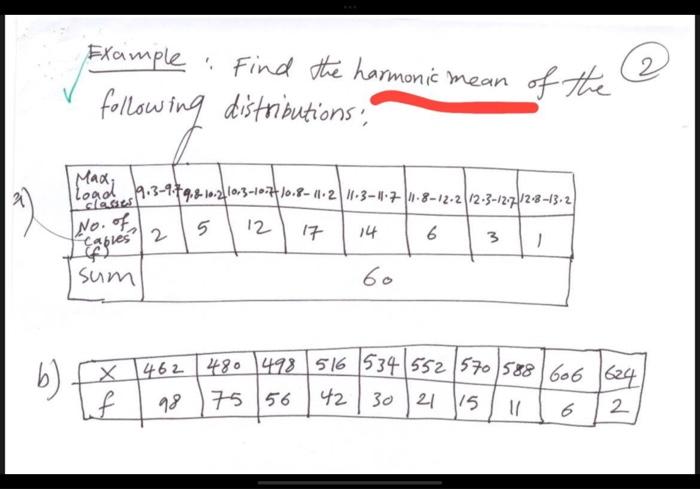 Example : Find the harmonic mean of the (2)
following distributions:
a)
Max. Load classes 9.3-9.7 9.8-10.2 10.3-10.7 10.8-11.2 11.3-11.7 11.8-12.2 12.3-12.7 12.8-13.2
No. of cables (f) 2 5 12 17 14 6 3 1
sum 60
b)
x 462 480 498 516 534 552 570 588 606 624
f 98 75 56 42 30 21 15 11 6 2